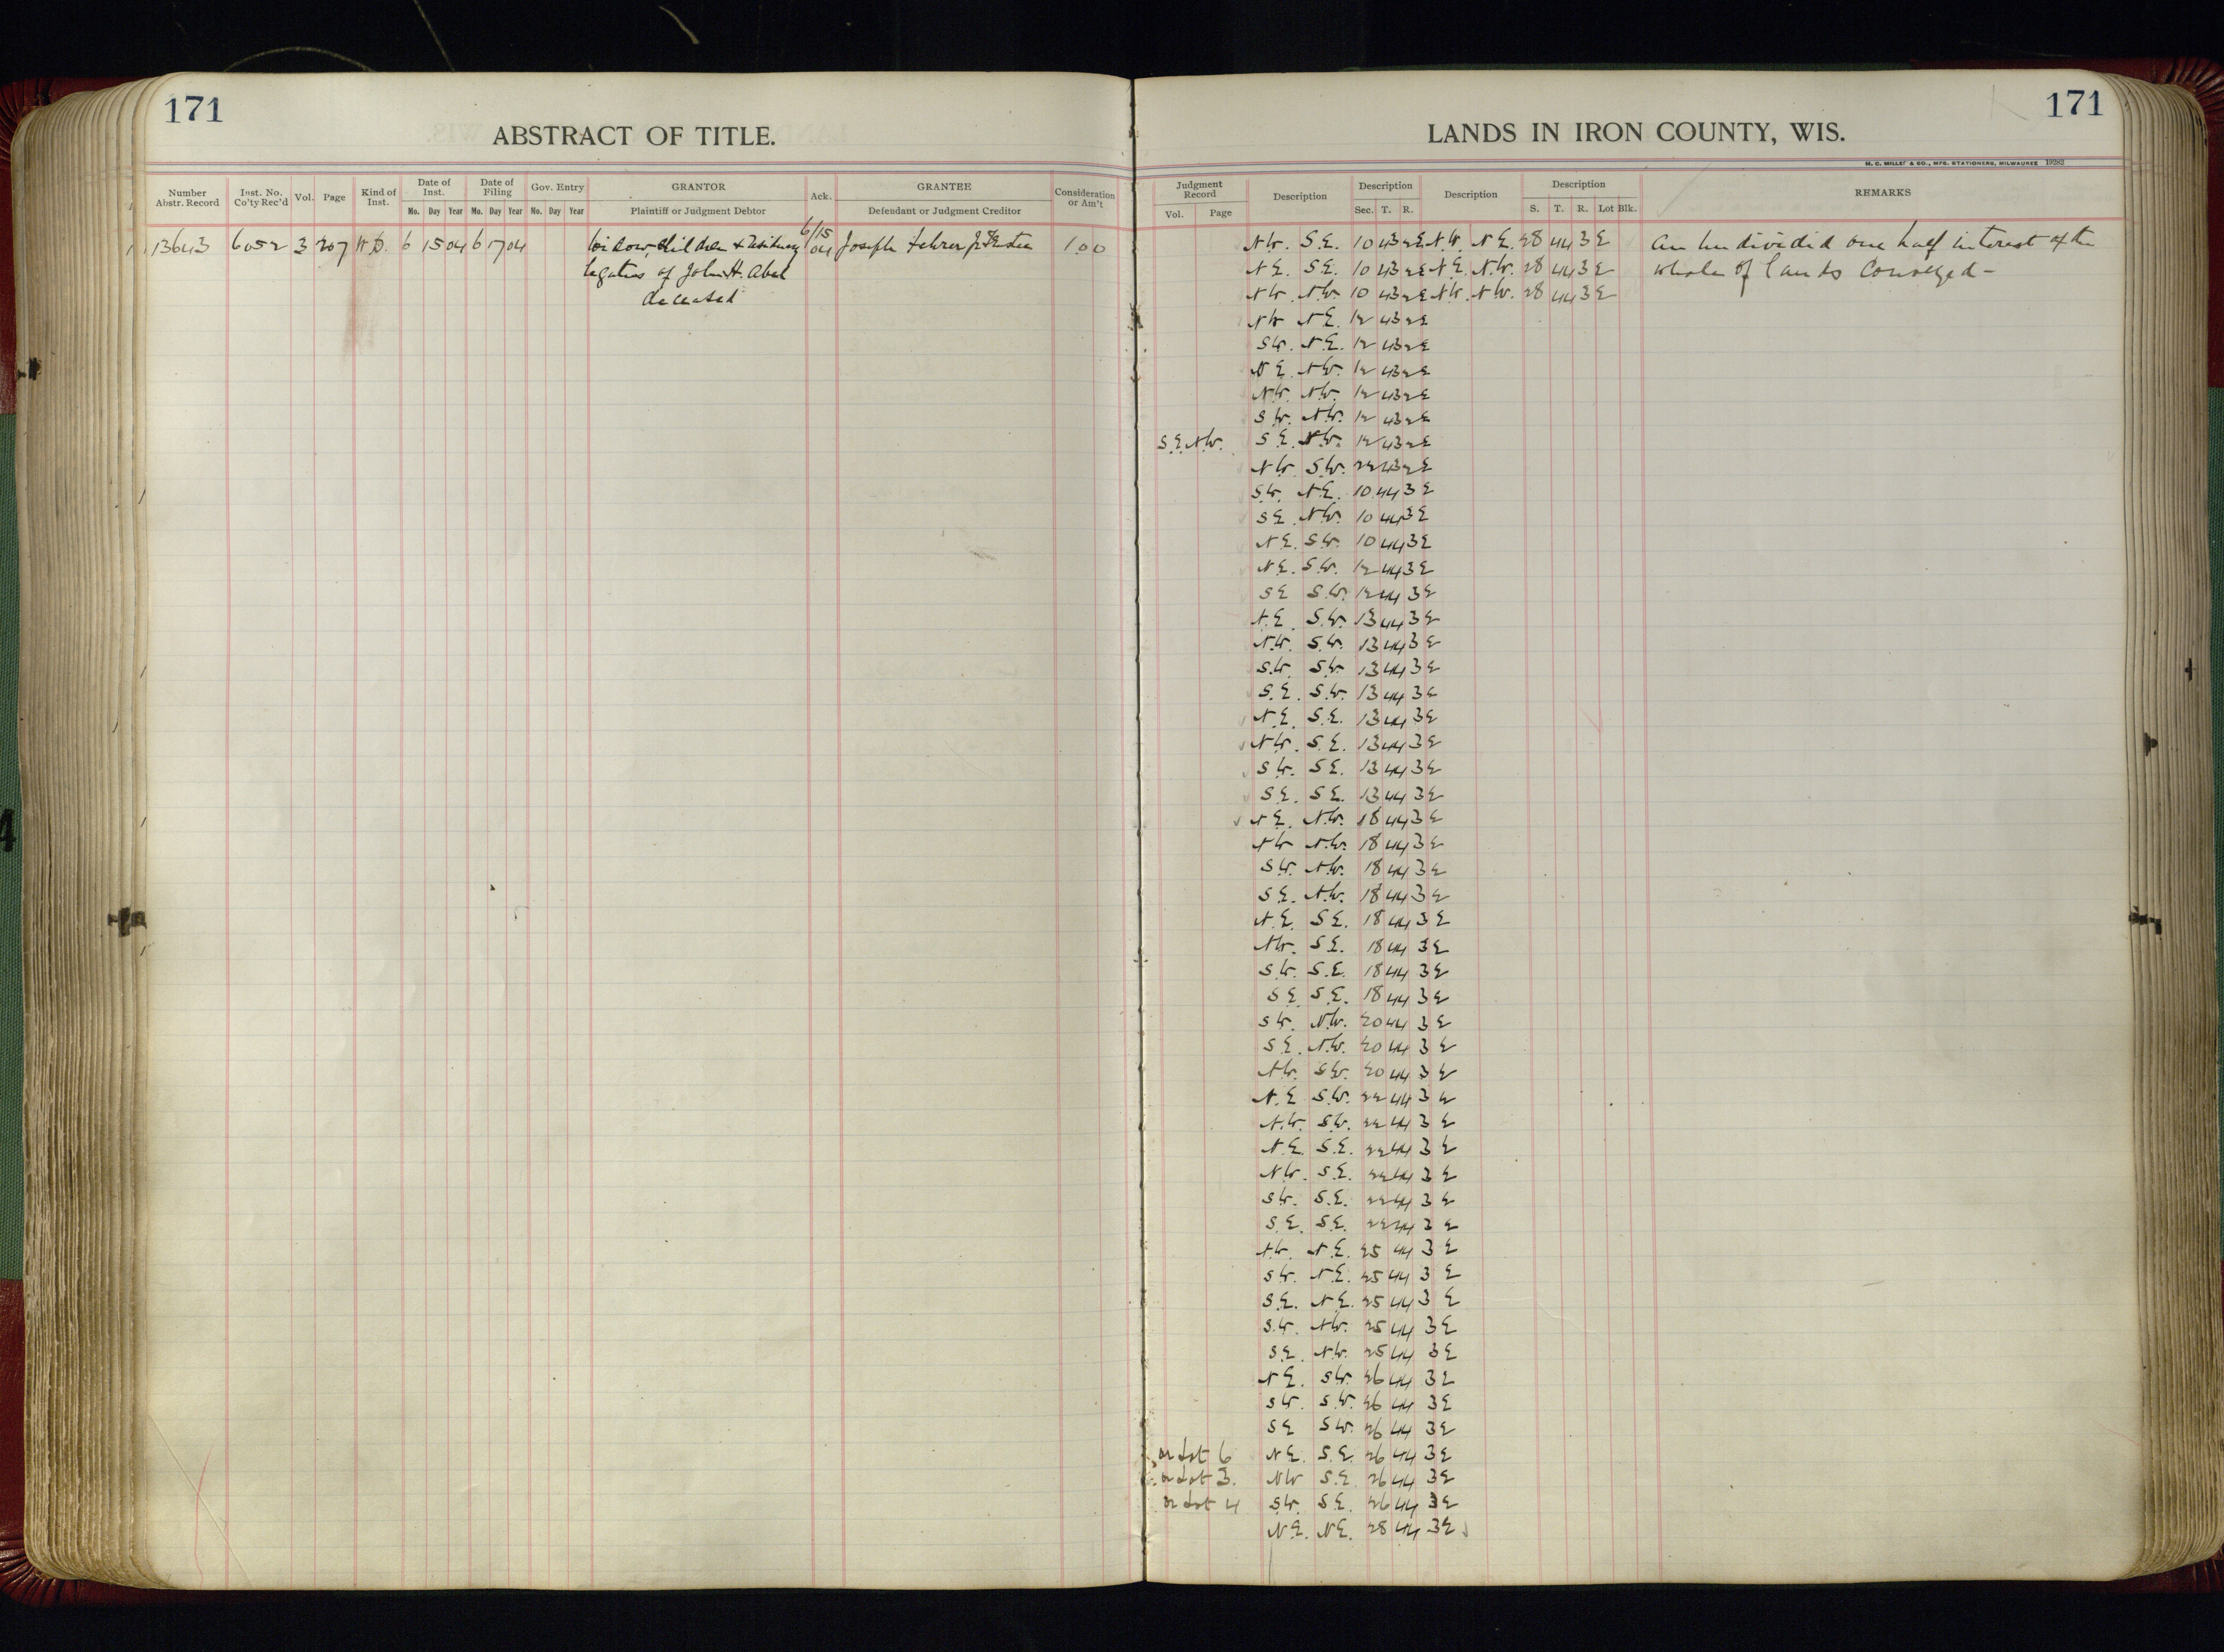 171
ABSTRACT OF TITLE.
Number Abstr. Record Inst. No. Co'ty Rec'd Vol. Page Kind of Inst. Date of Inst. Mo. Day Year Date of Filing Mo. Day Year Gov. Entry No. Day Year GRANTOR Plaintiff or Judgment Debtor Ack. GRANTEE Defendant or Judgment Creditor Consideration or Am't
13643 6052 3 207 W.D. 6 15 04 6 17 04 Widow, children & 6/15 04 Joseph 1.00
legatees of John H. Abel
deceased
171
LANDS IN IRON COUNTY, WIS.
H. C. MILLER & CO., MFG. STATIONERS, MILWAUKEE 19282
Judgment Record Vol. Page Description Description Sec. T. R. Description Description S. T. R. Lot Blk. REMARKS
N.W. S.E. 10 43 2 E N.W. N.E. 28 44 3 E An undivided one half interest of the
N.E. S.E. 10 43 2 E N.E. N.W. 28 44 3 E whole of lands conveyed-
N.W. N.W. 10 43 2 E N.W. N.W. 28 44 3 E
N.W. N.E. 12 43 2 E
S.W. N.E. 12 43 2 E
N.E. N.W. 12 43 2 E
N.W. N.W. 12 43 2 E
S.W. N.W. 12 43 2 E
S.E. N.W. S.E. N.W. 12 43 2 E
N.W. S.W. 22 43 2 E
S.W. N.E. 10 44 3 E
S.E. N.W. 10 44 3 E
N.E. S.W. 10 44 3 E
N.E. S.W. 12 44 3 E
S.E. S.W. 12 44 3 E
N.E. S.W. 13 44 3 E
N.W. S.W. 13 44 3 E
S.W. S.W. 13 44 3 E
S.E. S.W. 13 44 3 E
N.E. S.E. 13 44 3 E
N.W. S.E. 13 44 3 E
S.W. S.E. 13 44 3 E
S.E. S.E. 13 44 3 E
N.E. N.W. 18 44 3 E
N.W. N.W. 18 44 3 E
S.W. N.W. 18 44 3 E
S.E. N.W. 18 44 3 E
N.E. S.E. 18 44 3 E
N.W. S.E. 18 44 3 E
S.W. S.E. 18 44 3 E
S.E. S.E. 18 44 3 E
S.W. N.W. 20 44 3 E
S.E. N.W. 20 44 3 E
N.W. S.W. 20 44 3 E
N.E. S.W. 22 44 3 E
N.W. S.W. 22 44 3 E
N.E. S.E. 22 44 3 E
N.W. S.E. 22 44 3 E
S.W. S.E. 22 44 3 E
S.E. S.E. 22 44 3 E
N.W. N.E. 25 44 3 E
S.W. N.E. 25 44 3 E
S.E. N.E. 25 44 3 E
S.W. N.W. 25 44 3 E
S.E. N.W. 25 44 3 E
N.E. S.W. 26 44 3 E
S.W. S.W. 26 44 3 E
S.E. S.W. 26 44 3 E
or Lot 6 N.E. S.E. 26 44 3 E
or Lot 3. N.W. S.E. 26 44 3 E
or Lot 4 S.W. S.E. 26 44 3 E
N.E. N.E. 28 44 3 E